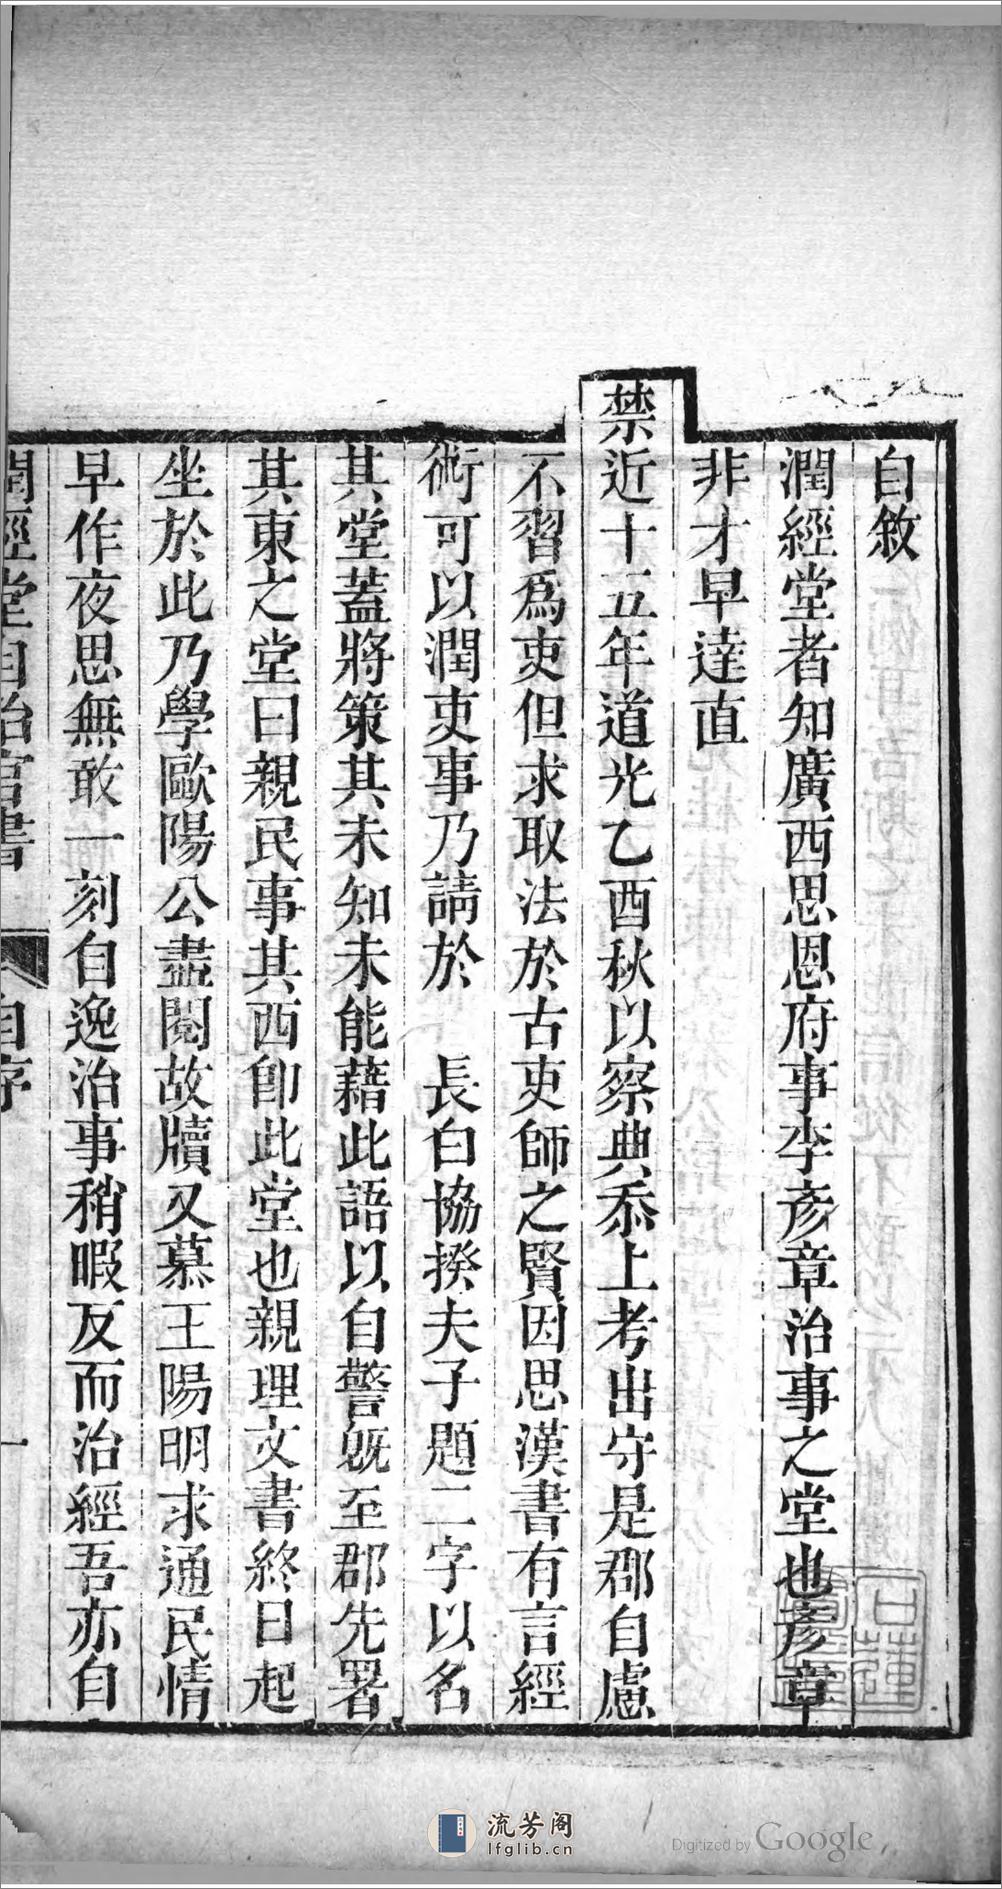 自敘
潤經堂者知廣西思恩府事李彥章治事之堂也彥章
非才早達直
禁近十五年道光乙酉秋以察典忝上考出守是郡自慮
不習爲吏但求取法於古吏師之賢因思漢書有言經
術可以潤吏事乃請於　長白協揆夫子題二字以名
其堂蓋將策其未知未能藉此語以自警旣至郡先署
其東之堂曰親民事其西卽此堂也親理文書終日起
坐於此乃學歐陽公盡閱故牘又慕王陽明求通民情
早作夜思無敢一刻自逸治事稍暇反而治經吾亦自
潤經堂自治官書
自序
一
流芳阁
lfglib.cn
Digitized by Google